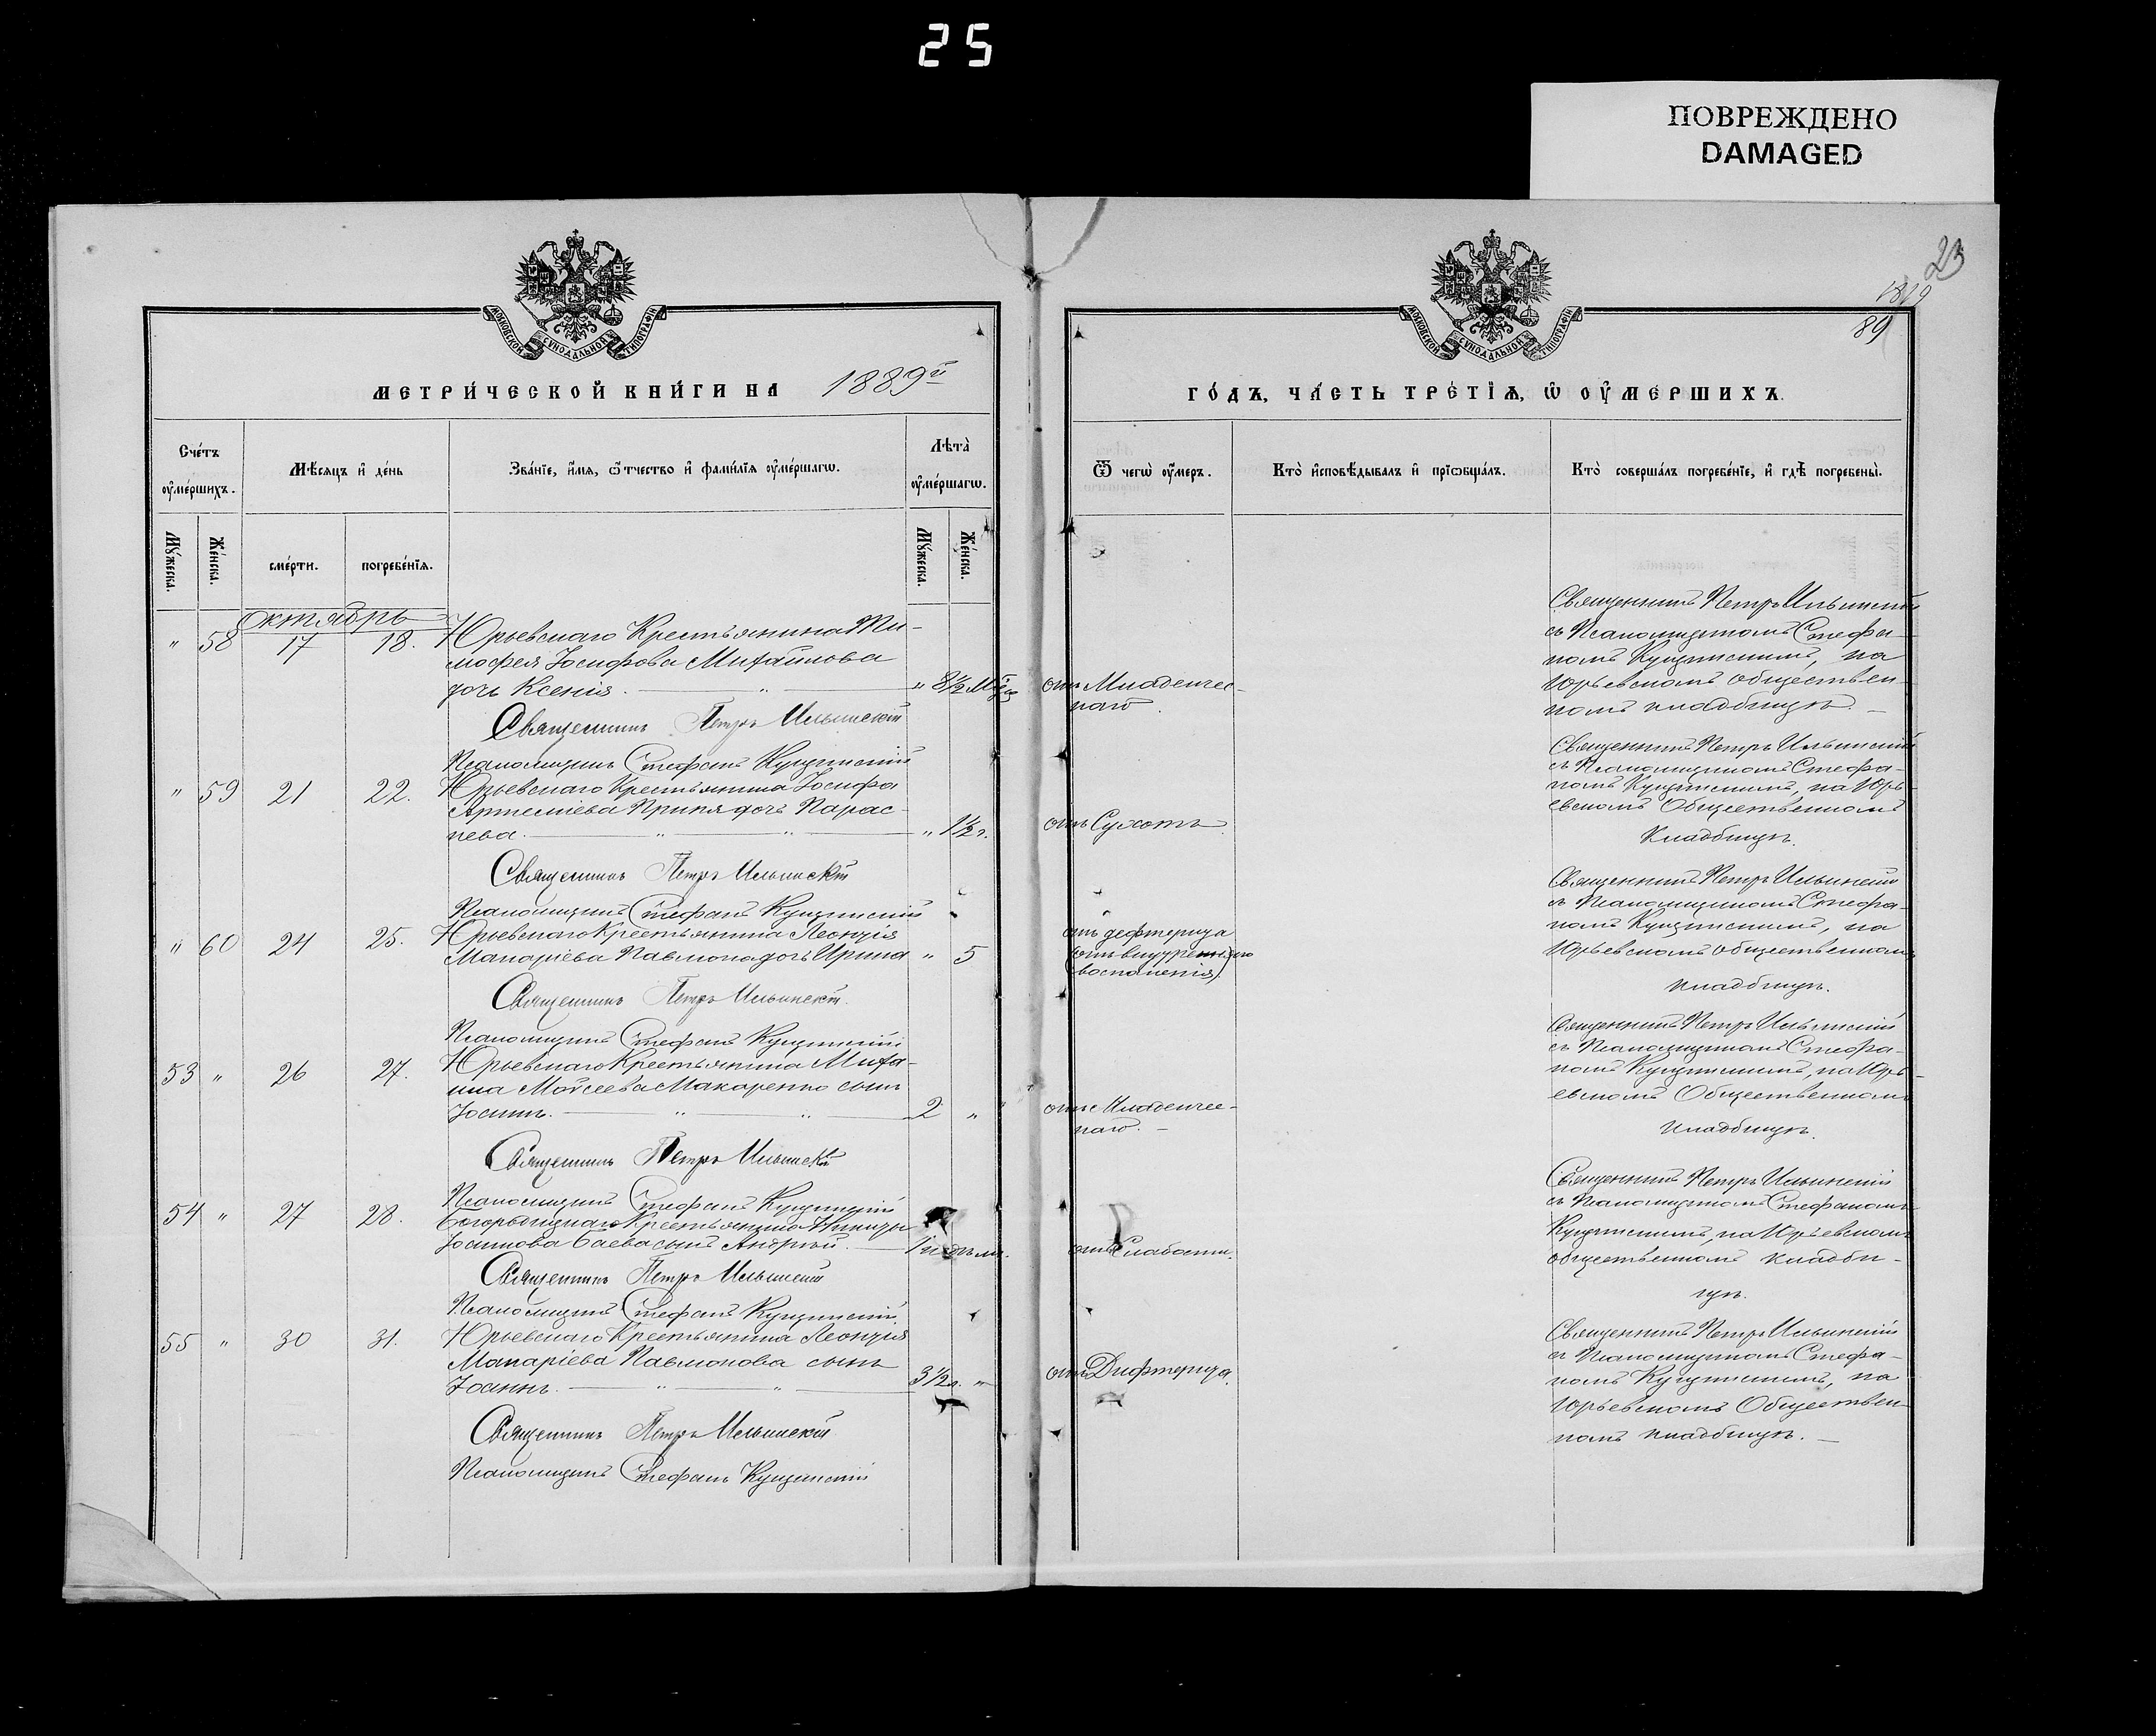 25
ПОВРЕЖДЕНО
DAMAGED
23
89
МОСКОВСКОЙ СУНОДАЛЬНОЙ ТИПОГРАФІИ
МОСКОВСКОЙ СУНОДАЛЬНОЙ ТИПОГРАФІИ
МЕТРИ́ЧЕСКОЙ КНИ́ГИ НА 1889й
ГО́ДЪ, ЧА́СТЬ ТРЕ́ТІѦ, Ѽ ОУ҆МЕ́РШИХЪ.
Сче́тъ оу҆ме́ршихъ.
Мѣ́сяцъ и҆ де́нь
Зва́нїе, и҆́мя, ѻ҆́тчество и҆ фами́лїя оу҆ме́ршагѡ.
Лѣта̀ оу҆ме́ршагѡ.
Ѿ чегѡ̀ оу҆́меръ.
Кто̀ и҆сповѣ́дывалъ и҆ прїѡбща́лъ.
Кто̀ соверша́лъ погребе́нїе, и҆ гдѣ̀ погребены̀.
Му́жеска.
Же́нска.
сме́рти.
погребе́нїя.
Му́жеска.
Же́нска.
октябрь
" 58 17 18. Юрьевскаго Крестьянина Ти-
мофея Іосифова Михайлова
дочь Ксенія. " 8½ м
Священникъ Петръ Ильинскій
Псаломщикъ Стефанъ Кущинскій
отъ Младенчес-
каго
Священникъ Петръ Ильинскій
съ Псаломщикомъ Стефа-
номъ Кущинскимъ, на
Юрьевскомъ обществен-
номъ кладбищѣ.
" 59 21 22. Юрьевскаго Крестьянина Іосифа
Артеміева дочь Парас-
кева. " 1½ г.
Священникъ Петръ Ильинскій
Псаломщикъ Стефанъ Кущинскій
отъ Сухотъ
Священникъ Петръ Ильинскій
съ Псаломщикомъ Стефа-
номъ Кущинскимъ, на Юрь-
евскомъ Общественномъ
Кладбищѣ.
" 60 24 25. Юрьевскаго Крестьянина Леонтія
Макаріева дочь Ирина " 5
Священникъ Петръ Ильинскій.
Псаломщикъ Стефанъ Кущинскій
отъ дефтерита
(отъ внутренняго
воспаленія).
Священникъ Петръ Ильинскій
съ Псаломщикомъ Стефа-
номъ Кущинскимъ, на
Юрьевскомъ общественномъ
кладбищѣ.
53 " 26 27. Юрьевскаго Крестьянина Миха-
ила Моисеева Макаренко сынъ
Іоаннъ. 2 "
Священникъ Петръ Ильинскій
Псаломщикъ Стефанъ Кущинскій
отъ Младенчес-
каго.
Священникъ Петръ Ильинскій
съ Псаломщикомъ Стефа-
номъ Кущинскимъ, на Юрь-
евскомъ Общественномъ
кладбищѣ.
54 " 27 28. Крестьянина Никиты
Баева сынъ Андрей.
Священникъ Петръ Ильинскій
Псаломщикъ Стефанъ Кущинскій
отъ Слабости.
Священникъ Петръ Ильинскій
съ Псаломщикомъ Стефаномъ
Кущинскимъ, на Юрьевскомъ
общественномъ кладби-
щѣ.
55 " 30 31. Юрьевскаго Крестьянина Леонтія
Макаріева сынъ
Іоаннъ. 3½ г. "
Священникъ Петръ Ильинскій
Псаломщикъ Стефанъ Кущинскій
отъ Дифтерита.
Священникъ Петръ Ильинскій
съ Псаломщикомъ Стефа-
номъ Кущинскимъ, на
Юрьевскомъ Обществен-
номъ кладбищѣ.